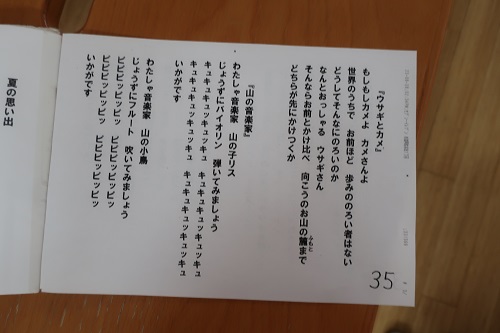 『ウサギとカメ』
もしもしカメよ カメさんよ
世界のうちで お前ほど 歩みののろい者はない
どうしてそんなにのろいのか
なんとおっしゃる ウサギさん
そんならお前とかけ比べ 向こうのお山の麓まで
ふもと
どちらが先にかけつくか
『山の音楽家』
わたしゃ音楽家 山の子リス
じょうずにバイオリン 弾いてみましょう
キュキュキュッキュッキュッ キュキュキュッキュッキュッ
キュキュキュッキュッキュ キュキュキュッキュッキュ
いかがです
わたしゃ音楽家 山の小鳥
じょうずにフルート 吹いてみましょう
ピピピッピッピッ ピピピッピッピッ
ピピピッピッピッ ピピピッピッピッ
いかがです
夏の思い出
35